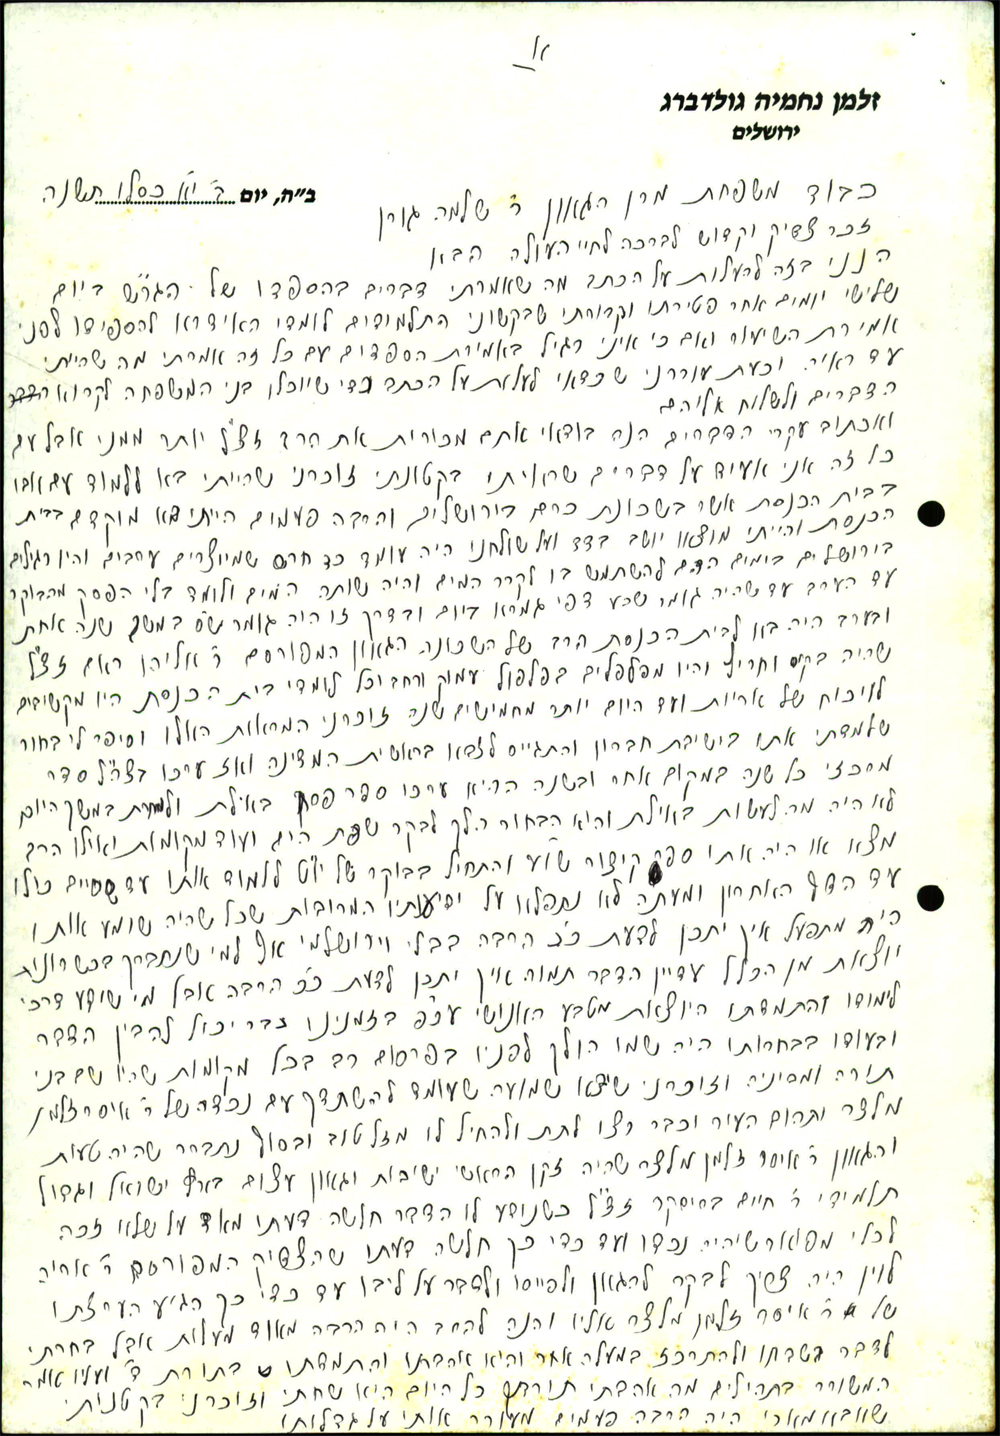 א/
זלמן נחמיה גולדברג
ירושלים
ב"ה, יום ב' י"א כסלו תשנה
כבוד משפחת מרן הגאון ר' שלמה גורן
זכר צדיק וקדוש לברכה לחיי העולם הבא
הנני בזה להעלות על הכתב מה שאמרתי דברים בהספדו של הגר"ש ביום
שלישי יומים אחר פטירתו וקבורתו שבקשוני התלמידים לומדי האידרא להספידו לפני
אמירת השיעור ואם כי איני רגיל באמירת הספדים עם כל זה אמרתי מה שהייתי
עד ראיה וכעת עוררני שכדאי לעלות על הכתב כדי שיוכלו בני המשפחה לקרוא
הדברים ולשלוח אליהם
ואכתוב עקרי הדברים הנה בודאי אתם מכירים את הרב זצ"ל יותר ממני אבל עם
כל זה אני אעיד על דברים שראיתי בקטנותי זוכרני שהייתי בא ללמוד עם אבי
בבית הכנסת אשר בשכונת כרם בירושלים והרבה פעמים הייתי בא מוקדם בבית
הכנסת והייתי מוצאו יושב בדד ועל שולחנו היה עומד כד חרס שמייצרים ערבים והיו רגילים
בירושלים בימים ההם להשתמש בו לקרר המים והיה שותה המים ולומד בלי הפסק מהבוקר
עד הערב עד שהיה גומר שבע דפי גמרא ביום ובדרך זו היה גומר ש"ס במשך שנה אחת
ובערב היה בא לבית הכנסת הרב של השכונה הגאון המפורסם ר' אליהו ראם זצ"ל
שהיה בקי וחריף והיו מפלפלים בפלפול עמוק ורחב וכל לומדי בית הכנסת היו מקשיבים
לויכוח של אריות ועד היום יותר מחמישים שנה זוכרני המראות האלו וסיפר לי בחור
שלמדתי אתו בישיבת חברון והתגייס לצבא בראשית המדינה ואז ערכו בצה"ל סדר
מרכזי כל שנה במקום אחר ובשנה ההיא ערכו סדר פסח באילת ולמחרת במשך היום
לא היה מה לעשות באילת והיא הבחור הלך לבקר שפת הים ועוד מקומות ואילו הרב
מצא או היה אתו ספר קיצור שו"ע והתחיל בבוקר של יו"ט ללמוד אותו עד שסיים כולו
עד הדף האחרון ומעתה לא נתפלא על ידיעותיו המרובות שכל שהיה שומע אותו
היה מתפעל איך יתכן לדעת כ"כ הרבה בבלי וירושלמי אף למי שנתברך בכשרונות
יוצאת מן הכלל עדיין הדבר תמוה איך יתכן לדעת כ"כ הרבה אבל מי שיודע דרכי
לימודו והתמדתו היוצאת מטבע האנושי עכ"פ בזמנינו כבר יכול להבין הדבר
ובעודו בבחרותו היה שמו הולך לפניו בפרסום רב בכל מקומות שהיו שם בני
תורה ומסיניה וזוכרני שיצא שמועה שעומד להשתדך עם נכדה של ר' איסר זלמן
מלצר ותהום העיר וכבר רצו לתת ולהחיל לו מזל טוב ובסוף נתברר שהיה טעות
והגאון ר' איסר זלמן מלצר שהיה זקן הראשי ישיבות וגאון עצום בארץ ישראל וגדול
תלמידי ר' חיים בריסקר זצ"ל כשנודע לו הדבר חלשה דעתו מאד על שלא זכה
לכלי מפואר שיהיה נכדו ועד כדי כך חלשה דעתו שהצדיק המפורסם ר' אריה
לוין היה צריך לבקר להגאון ולפייסו ולדבר על ליבו עד כדי כך הגיע הערצתו
של ר' איסר זלמן מלצר אליו והנה להרב היה הרבה מאוד מעלות אבל בחרתי
לדבר בשבחו ולהתרכז במעלה אחד והיא אהבתו והתמדתו בתורת ד' ועליו אמר
המשורר בתהילים מה אהבתי תורתך כל היום היא שחתי וזוכרני בקטנותי
שאבא מארי היה הרבה פעמים מעורר אותי על גדלותו